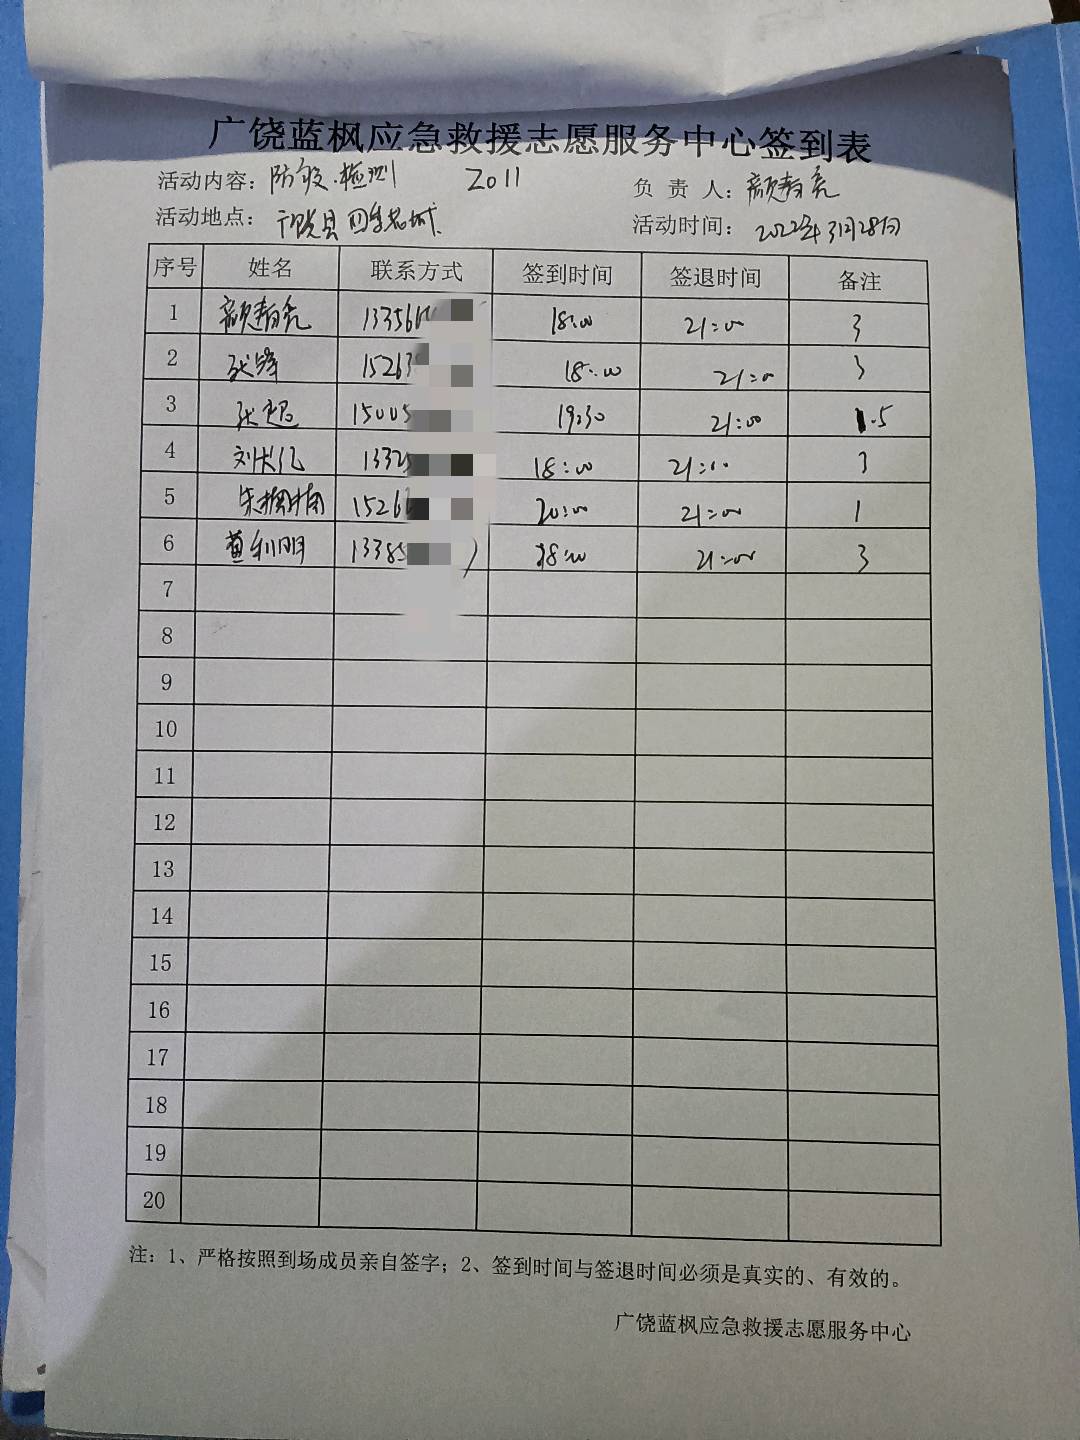 广饶蓝枫应急救援志愿服务中心签到表
活动内容：防疫.检测 2011 负责人：颜寿亮
活动地点：广饶县四季花城 活动时间：2022年3月28日
序号 姓名 联系方式 签到时间 签退时间 备注
1 颜寿亮 13356 18:00 21:00 3
2 张锋 1526 18:00 21:00 3
3 张超 15005 19:30 21:00 1.5
4 刘 1332 18:00 21:00 3
5 1526 20:00 21:00 1
6 董利明 13385 18:00 21:00 3
7
8
9
10
11
12
13
14
15
16
17
18
19
20
注：1、严格按照到场成员亲自签字；2、签到时间与签退时间必须是真实的、有效的。
广饶蓝枫应急救援志愿服务中心